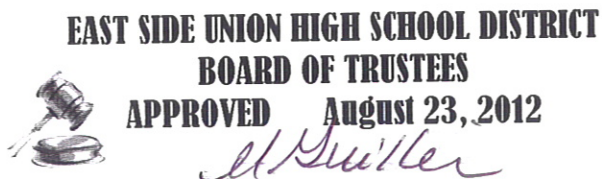 EAST SIDE UNION HIGH SCHOOL DISTRICT
BOARD OF TRUSTEES
APPROVED August 23, 2012